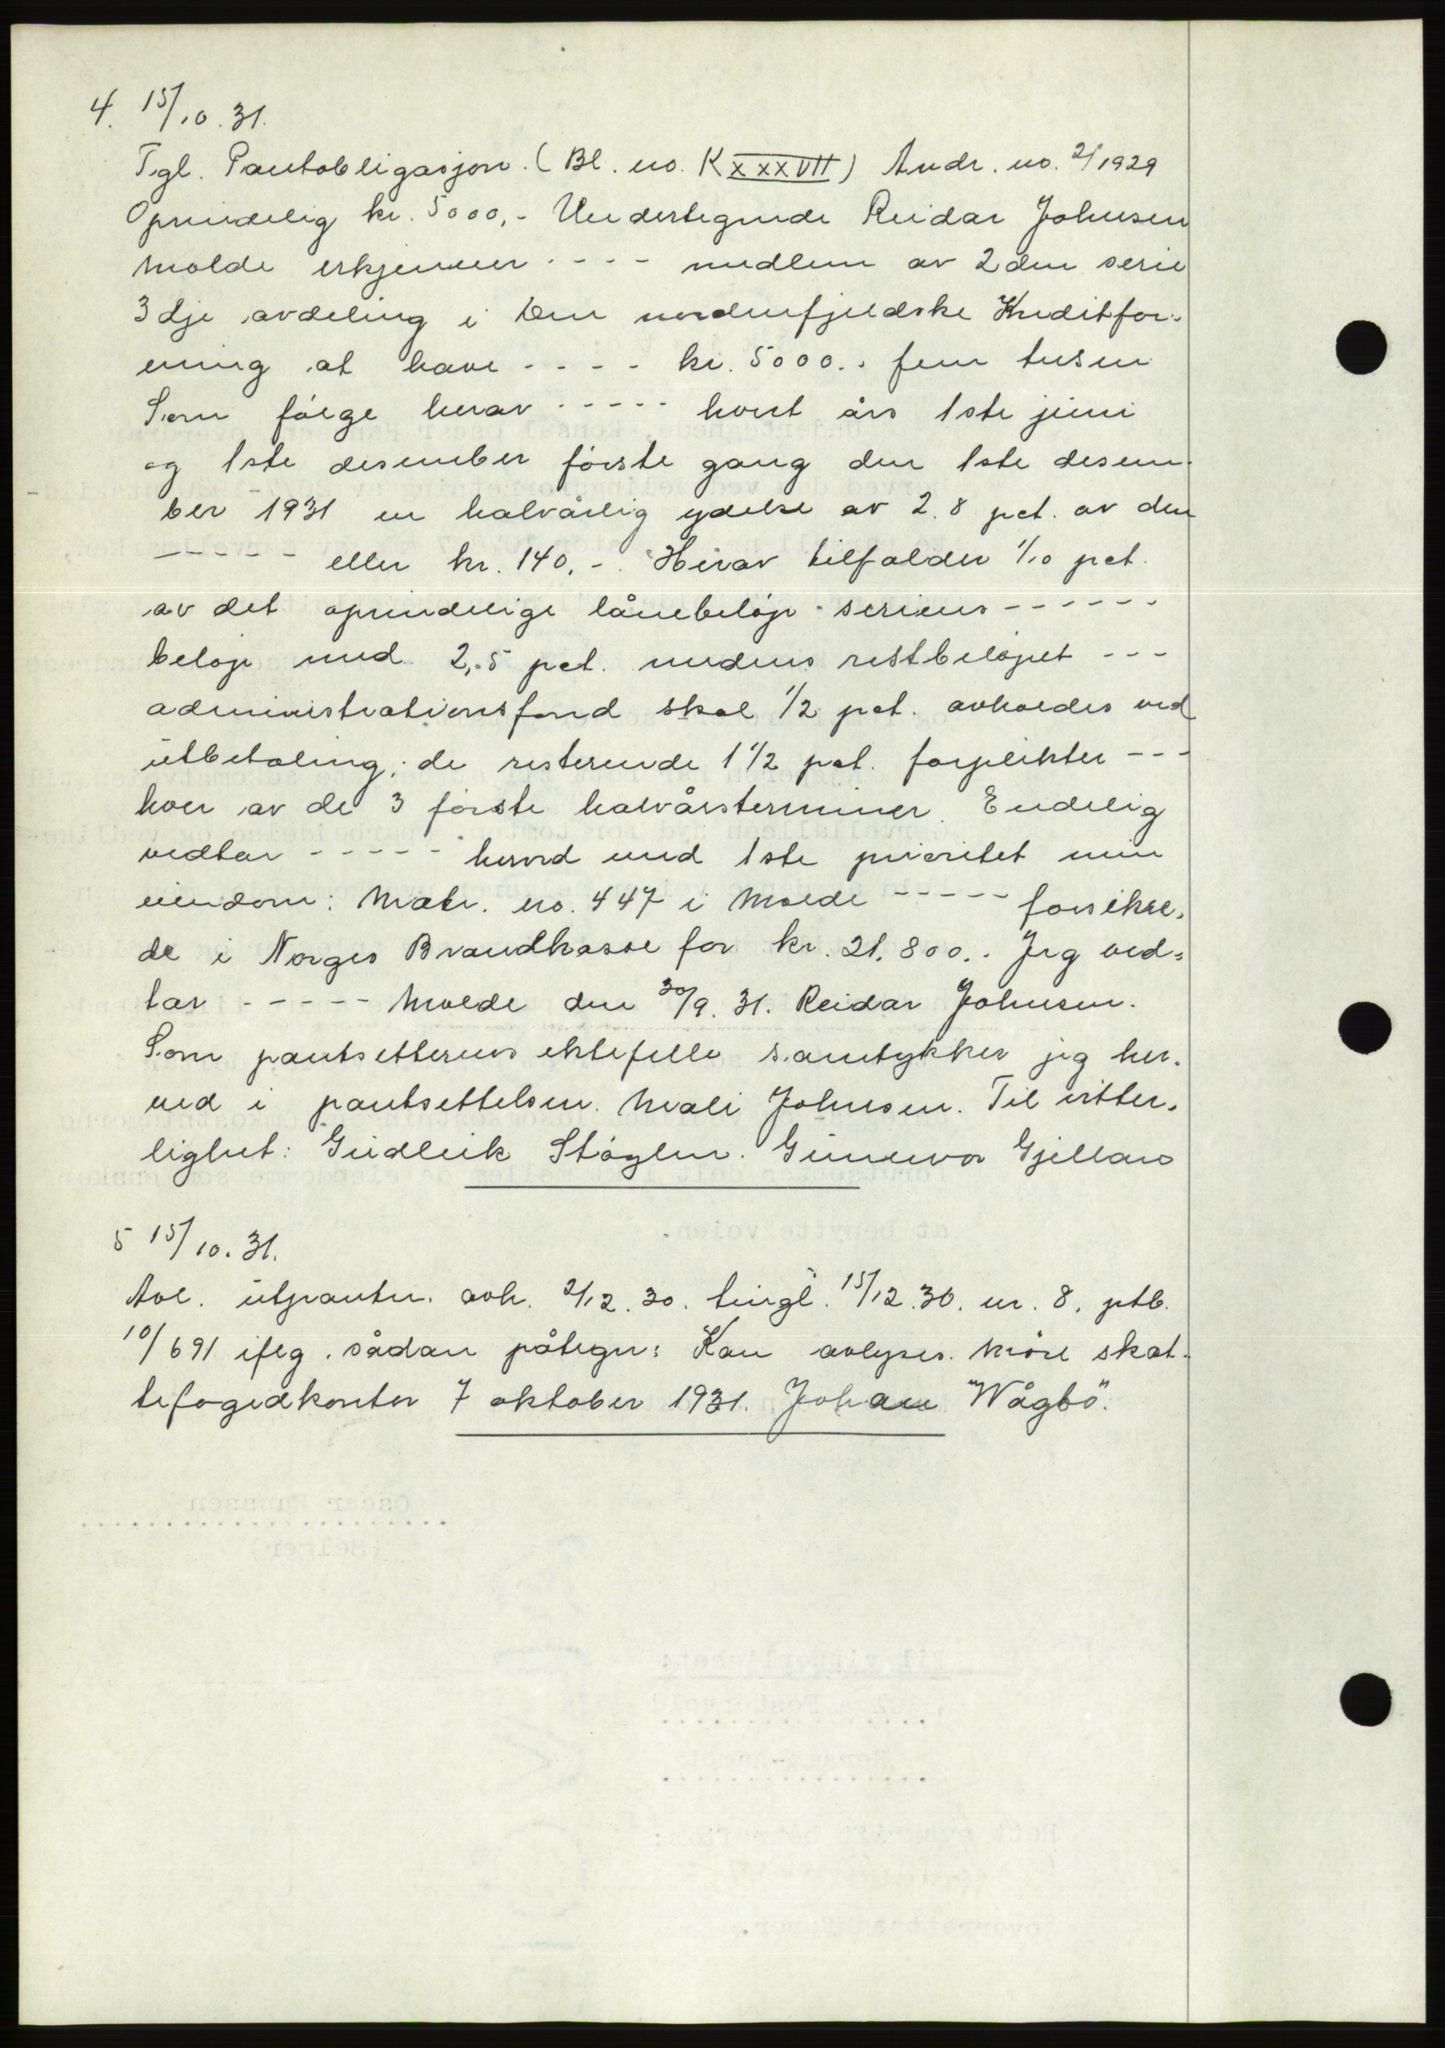 4. 15/10.31.
Tgl. Pantobligasjon. (Bl. no. K XXXVII) Andr. no. 2/1929
Oprindelig kr. 5000,- Undertegnede Reidar Johnsen
Molde erkjenner - - - - medlem av 2den serie
3dje avdeling i Den nordenfjeldske Kreditfor-
ening at have - - - - kr. 5000.- fem tusen
Som følge herav - - - - - hvert års 1ste juni
og 1ste desember første gang den 1ste desem-
ber 1931 en halvårlig ydelse av 2.8 pct. av den
- - - - - eller kr. 140,-. Herav tilfalder 1/10 pct.
av det oprindelige lånebeløp seriens - - - - - -
beløp med 2,5 pct. medens restbeløpet - - -
administrationsfond skal 1/2 pct. avholdes ved
utbetaling; de resterende 1 1/2 pct. forplikter - - -
hver av de 3 første halvårsterminer. Endelig
vedtar - - - - - herved med 1ste prioritet min
eiendom: Matr. no. 447 i Molde - - - - - forsikre-
de i Norges Brandkasse for kr. 21.800.- Jeg ved-
tar - - - - - Molde den 30/9.31. Reidar Johnsen.
Som pantsetterens ektefelle samtykker jeg her-
ved i pantsettelsen. Mali Johnsen. Til vitter-
lighet: Gudleik Støylen. Gunnvor Gjellan
5 15/10.31.
Avl. utpantn. avh. 2/12.30. tingl. 15/12.30. nr. 8. ptb.
10/691 iflg. sådan påtegn: Kan avlyses. Møre skat-
tefogedkontor 7 oktober 1931. Johan "Vågbø".